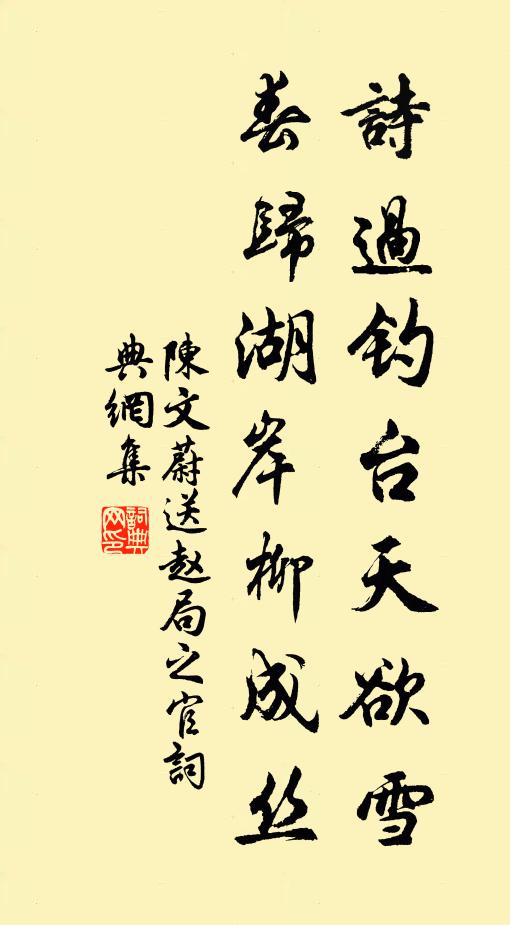 詩過钓台天欲雪
春歸湖岸柳成丝
陳文蔚送赵局之官詞
典網集
詞典网印